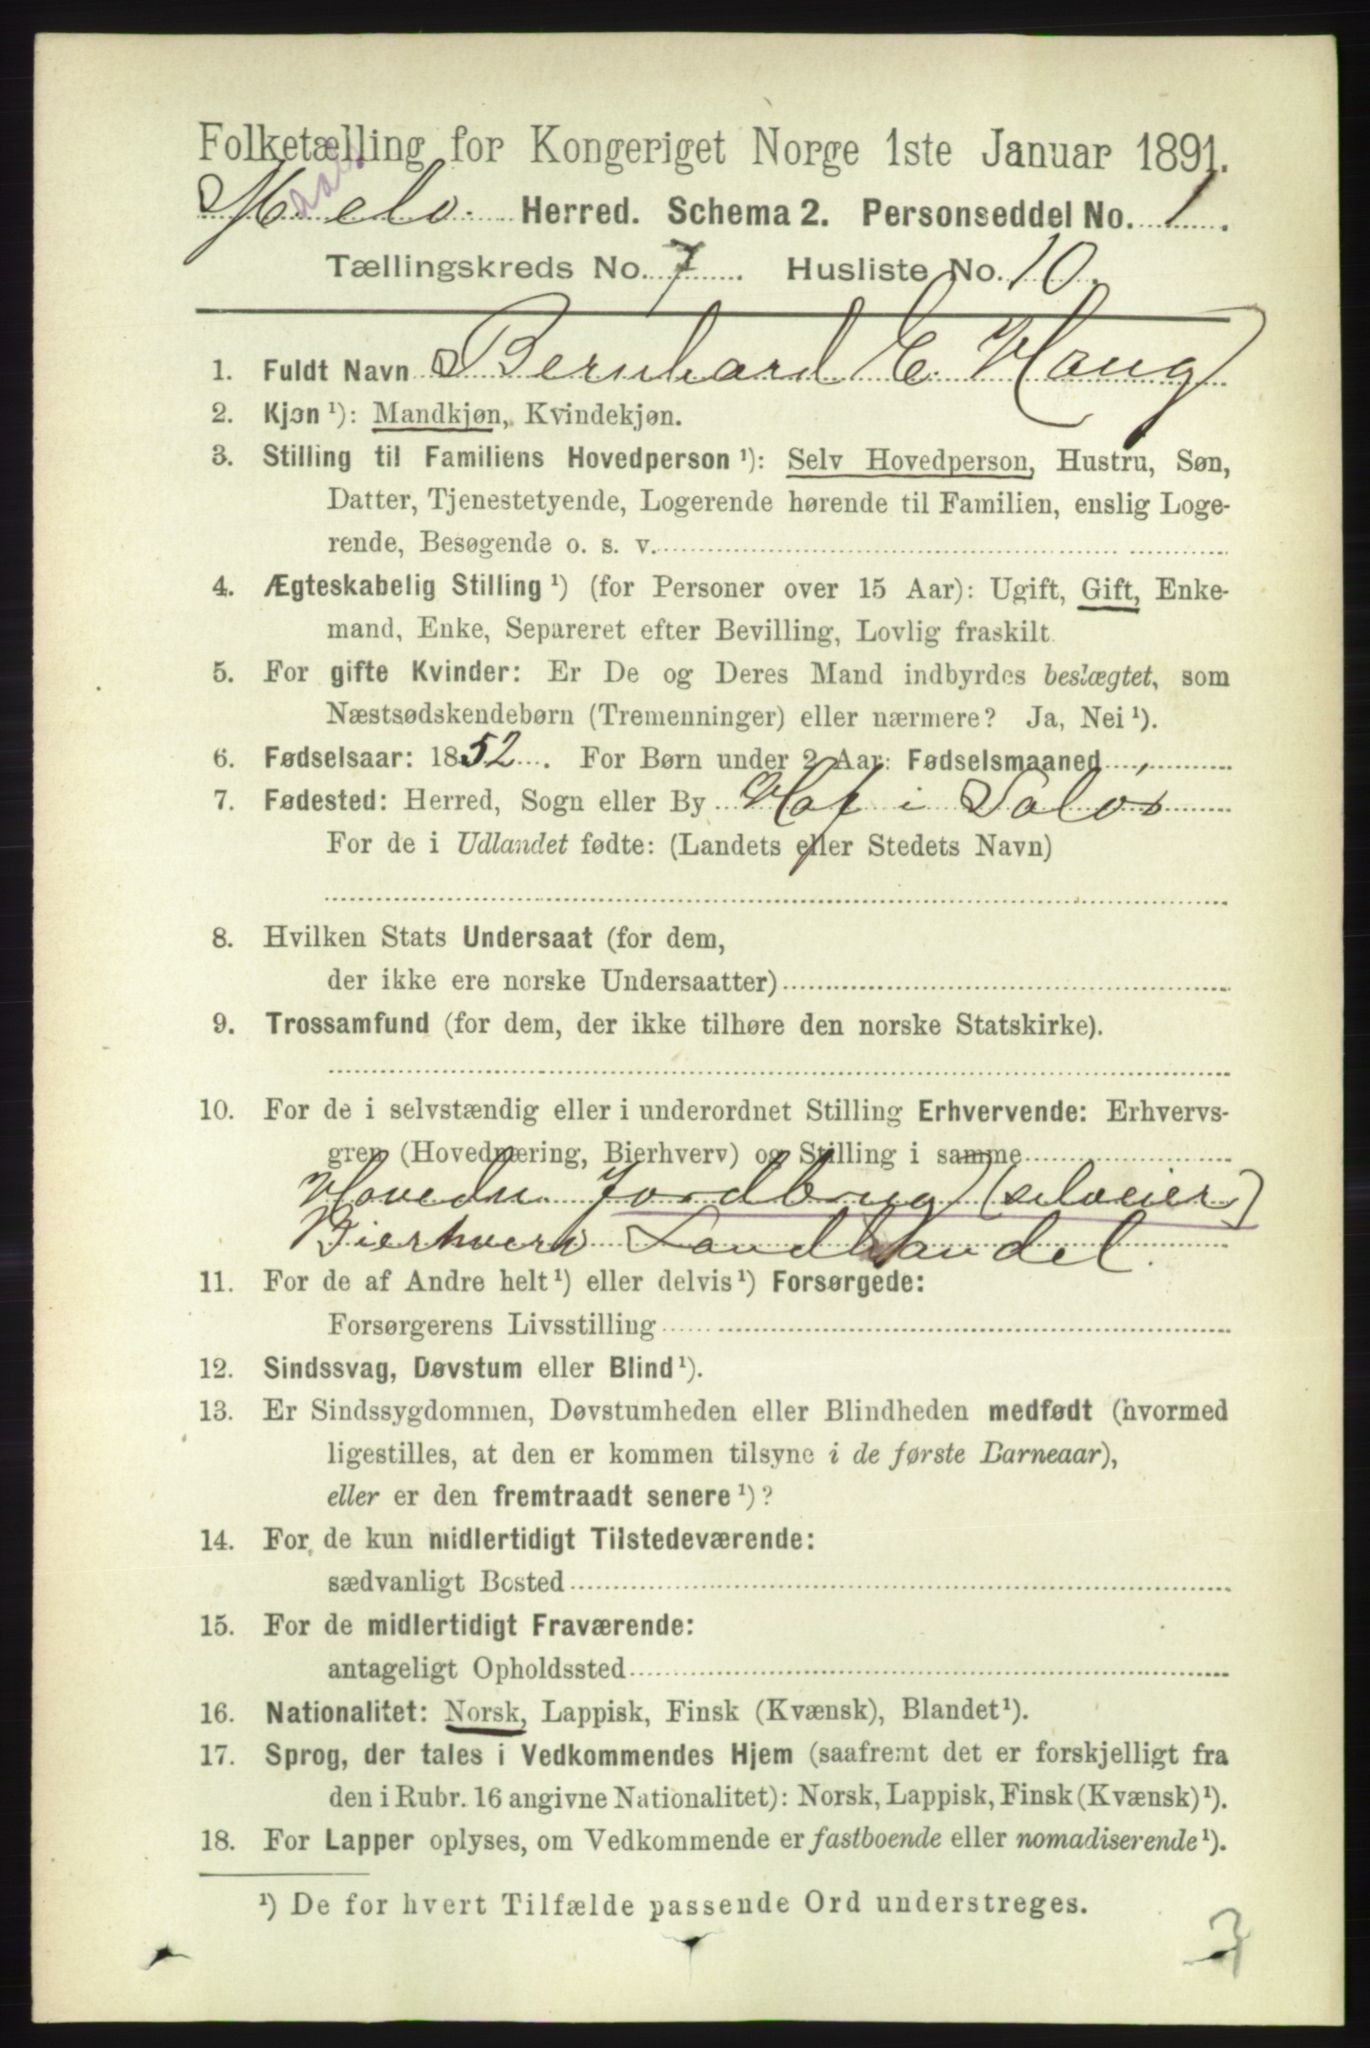 Folketælling for Kongeriget Norge 1ste Januar 1891.
Herred. Schema 2. Personseddel No. 1.
Tællingskreds No. 7. Husliste No. 10.
1. Fuldt Navn Bernhard E. Haug
2. Kjøn ¹): Mandkjøn, Kvindekjøn.
3. Stilling til Familiens Hovedperson ¹): Selv Hovedperson, Hustru, Søn,
Datter, Tjenestetyende, Logerende hørende til Familien, enslig Loge-
rende, Besøgende o. s. v.
4. Ægteskabelig Stilling ¹) (for Personer over 15 Aar): Ugift, Gift, Enke-
mand, Enke, Separeret efter Bevilling, Lovlig fraskilt
5. For gifte Kvinder: Er De og Deres Mand indbyrdes beslægtet, som
Næstsødskendebørn (Tremenninger) eller nærmere? Ja, Nei ¹).
6. Fødselsaar: 1852. For Børn under 2 Aar: Fødselsmaaned
7. Fødested: Herred, Sogn eller By Hof i Solør
For de i Udlandet fødte: (Landets eller Stedets Navn)
8. Hvilken Stats Undersaat (for dem,
der ikke ere norske Undersaatter)
9. Trossamfund (for dem, der ikke tilhøre den norske Statskirke).
10. For de i selvstændig eller i underordnet Stilling Erhvervende: Erhvervs-
gren (Hovednæring, Bierhverv) og Stilling i samme
Hovedn. Jordbrug (selveier)
Bierhverv Landhandel.
11. For de af Andre helt ¹) eller delvis ¹) Forsørgede:
Forsørgerens Livsstilling
12. Sindssvag, Døvstum eller Blind ¹).
13. Er Sindssygdommen, Døvstumheden eller Blindheden medfødt (hvormed
ligestilles, at den er kommen tilsyne i de første Barneaar),
eller er den fremtraadt senere ¹)?
14. For de kun midlertidigt Tilstedeværende:
sædvanligt Bosted
15. For de midlertidigt Fraværende:
antageligt Opholdssted
16. Nationalitet: Norsk, Lappisk, Finsk (Kvænsk), Blandet ¹).
17. Sprog, der tales i Vedkommendes Hjem (saafremt det er forskjelligt fra
den i Rubr. 16 angivne Nationalitet): Norsk, Lappisk, Finsk (Kvænsk) ¹).
18. For Lapper oplyses, om Vedkommende er fastboende eller nomadiserende ¹).
¹) De for hvert Tilfælde passende Ord understreges.